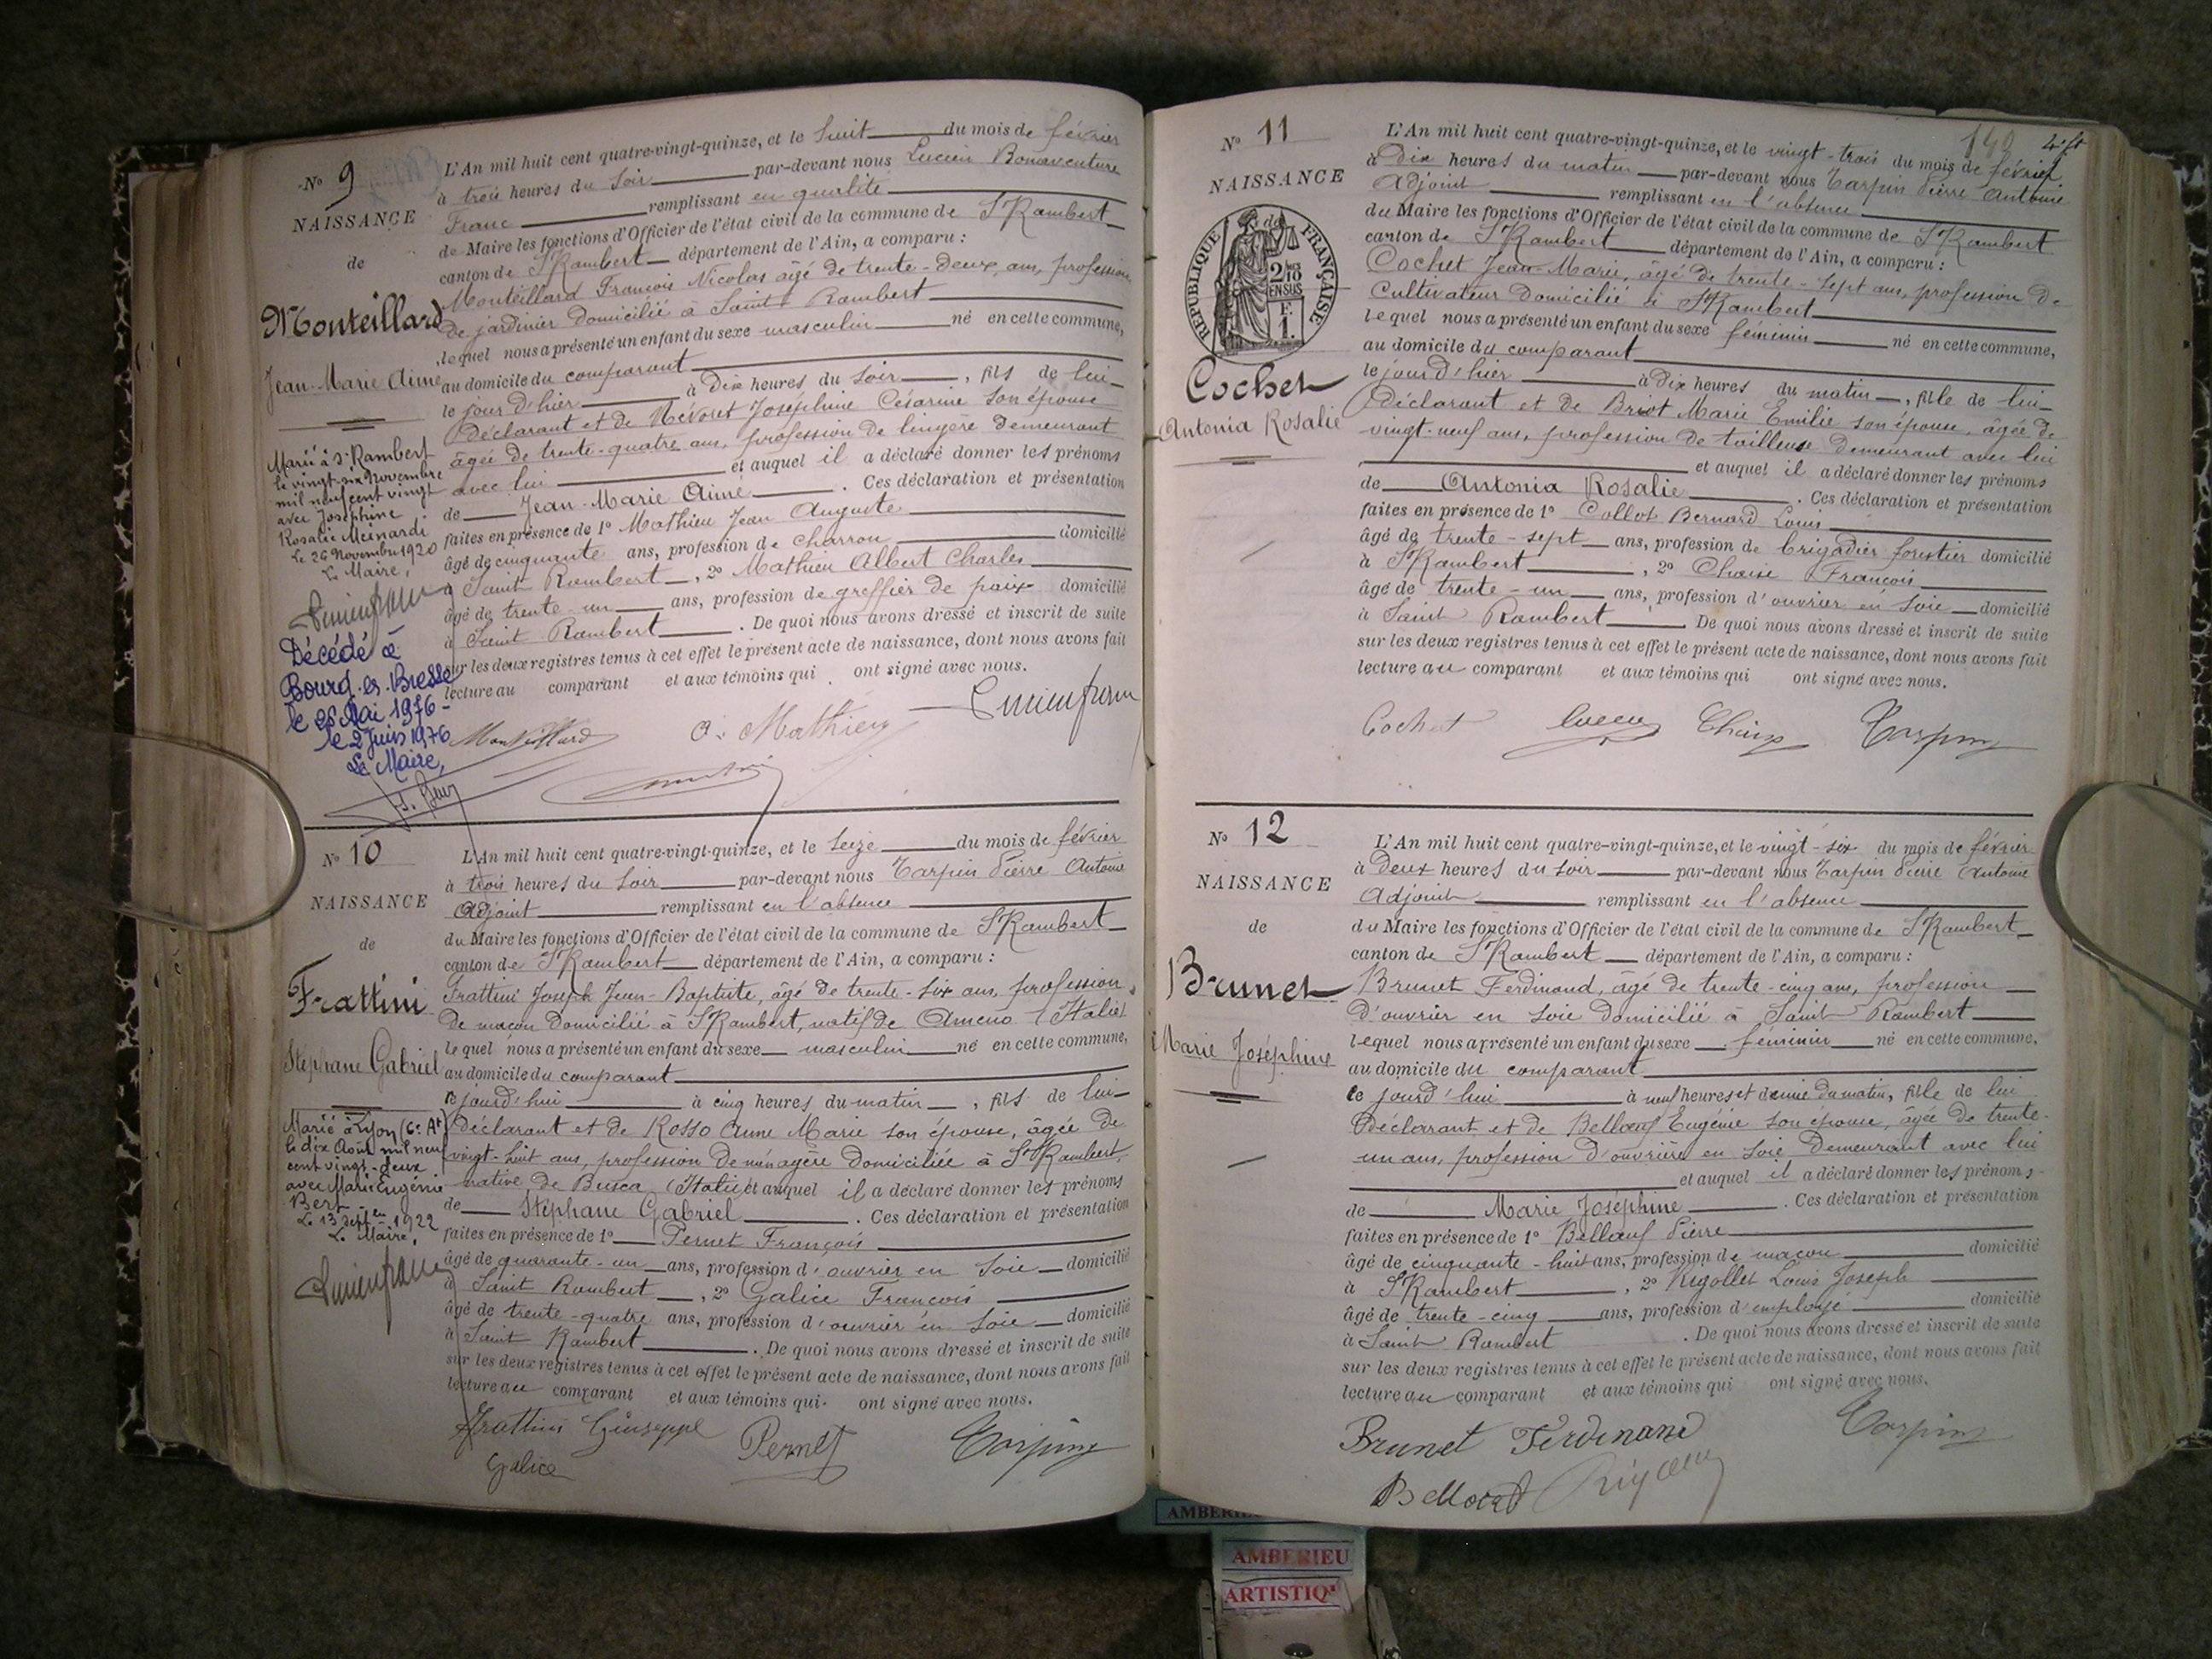 N° 9
NAISSANCE
de
Monteillard
Jean-Marie Aimé
Marié à St Rambert
le vingt-six Novembre
mil neuf cent vingt
avec Joséphine
Rosalie Meinardi
Le 26 Novembre 1920
Le Maire,
Décédé à
Bourg-en-Bresse
le Mai 1976
le 2 Juin 1976
Le Maire,
L'An mil huit cent quatre-vingt-quinze, et le huit du mois de février
à trois heures du soir par-devant nous Lucien Bonaventure
Franc remplissant en qualité
de Maire les fonctions d'Officier de l'état civil de la commune de St Rambert
canton de St Rambert département de l'Ain, a comparu :
Monteillard François Nicolas âgé de trente-deux ans, profession
de jardinier domicilié à Saint Rambert
lequel nous a présenté un enfant du sexe masculin né en cette commune,
au domicile du comparant
le jour d'hier à dix heures du soir, fils de lui
déclarant et de Joséphine Césarine son épouse
âgée de trente-quatre ans, profession de lingère demeurant
avec lui et auquel il a déclaré donner les prénoms
de Jean-Marie Aimé. Ces déclaration et présentation
faites en présence de 1° Mathieu Jean Auguste
âgé de cinquante ans, profession de charron domicilié
à Saint Rambert, 2° Mathieu Albert Charles
âgé de trente-un ans, profession de greffier de paix domicilié
à Saint Rambert. De quoi nous avons dressé et inscrit de suite
sur les deux registres tenus à cet effet le présent acte de naissance, dont nous avons fait
lecture au comparant et aux témoins qui ont signé avec nous.
Monteillard A. Mathieu Lucien Franc
N° 10
NAISSANCE
de
Frattini
Stéphane Gabriel
Marié à Lyon (6e At)
le dix Août mil neuf
cent vingt-deux
avec Marie Eugénie
Bert
Le 13 Sept en 1922
Le Maire,
L'An mil huit cent quatre-vingt-quinze, et le seize du mois de février
à trois heures du soir par-devant nous Tarpin Pierre Antoine
Adjoint remplissant en l'absence
du Maire les fonctions d'Officier de l'état civil de la commune de St Rambert
canton de St Rambert département de l'Ain, a comparu :
Frattini Joseph Jean-Baptiste, âgé de trente-six ans, profession
de maçon domicilié à St Rambert, natif de Ameno (Italie)
lequel nous a présenté un enfant du sexe masculin né en cette commune,
au domicile du comparant
le jourd'hui à cinq heures du matin, fils de lui
déclarant et de Rosso Anne Marie son épouse, âgée de
vingt-huit ans, profession de ménagère domiciliée à St Rambert,
native de Busca (Italie) et auquel il a déclaré donner les prénoms
de Stéphane Gabriel. Ces déclaration et présentation
faites en présence de 1° Pernet François
âgé de quarante-un ans, profession d'ouvrier en soie domicilié
à Saint Rambert, 2° Galice François
âgé de trente-quatre ans, profession d'ouvrier en soie domicilié
à Saint Rambert. De quoi nous avons dressé et inscrit de suite
sur les deux registres tenus à cet effet le présent acte de naissance, dont nous avons fait
lecture au comparant et aux témoins qui ont signé avec nous.
Frattini Giuseppe Pernet Tarpin
Galice
N° 11
NAISSANCE
RÉPUBLIQUE FRANÇAISE
2/10 EN SUS
F.
1.
de
Cochet
Antonia Rosalie
140
L'An mil huit cent quatre-vingt-quinze, et le vingt-trois du mois de février
à dix heures du matin par-devant nous Tarpin Pierre Antoine
Adjoint remplissant en l'absence
du Maire les fonctions d'Officier de l'état civil de la commune de St Rambert
canton de St Rambert département de l'Ain, a comparu :
Cochet Jean-Marie, âgé de trente-sept ans, profession de
cultivateur domicilié à St Rambert
lequel nous a présenté un enfant du sexe féminin né en cette commune,
au domicile du comparant
le jour d'hier à dix heures du matin, fille de lui
déclarant et de Briot Marie Emilie son épouse, âgée de
vingt-neuf ans, profession de tailleuse demeurant avec lui
et auquel il a déclaré donner les prénoms
de Antonia Rosalie. Ces déclaration et présentation
faites en présence de 1° Collot Bernard Louis
âgé de trente-sept ans, profession de brigadier forestier domicilié
à St Rambert, 2° Chaise François
âgé de trente-un ans, profession d'ouvrier en soie domicilié
à Saint Rambert. De quoi nous avons dressé et inscrit de suite
sur les deux registres tenus à cet effet le présent acte de naissance, dont nous avons fait
lecture au comparant et aux témoins qui ont signé avec nous.
Cochet Tarpin
N° 12
NAISSANCE
de
Brunet
Marie Joséphine
L'An mil huit cent quatre-vingt-quinze, et le vingt-six du mois de février
à deux heures du soir par-devant nous Tarpin Pierre Antoine
Adjoint remplissant en l'absence
du Maire les fonctions d'Officier de l'état civil de la commune de St Rambert
canton de St Rambert département de l'Ain, a comparu :
Brunet Ferdinand, âgé de trente-cinq ans, profession
d'ouvrier en soie domicilié à Saint Rambert
lequel nous a présenté un enfant du sexe féminin né en cette commune,
au domicile du comparant
le jourd'hui à neuf heures et demie du matin, fille de lui
déclarant et de Bellœuf Eugénie son épouse, âgée de trente-
un ans, profession d'ouvrière en soie demeurant avec lui
et auquel il a déclaré donner les prénoms
de Marie Joséphine. Ces déclaration et présentation
faites en présence de 1° Bellœuf Pierre
âgé de cinquante-huit ans, profession de maçon domicilié
à St Rambert, 2° Rigollet Louis Joseph
âgé de trente-cinq ans, profession d'employé domicilié
à Saint Rambert. De quoi nous avons dressé et inscrit de suite
sur les deux registres tenus à cet effet le présent acte de naissance, dont nous avons fait
lecture au comparant et aux témoins qui ont signé avec nous.
Brunet Ferdinand Tarpin
AMBERIEU
ARTISTIQ